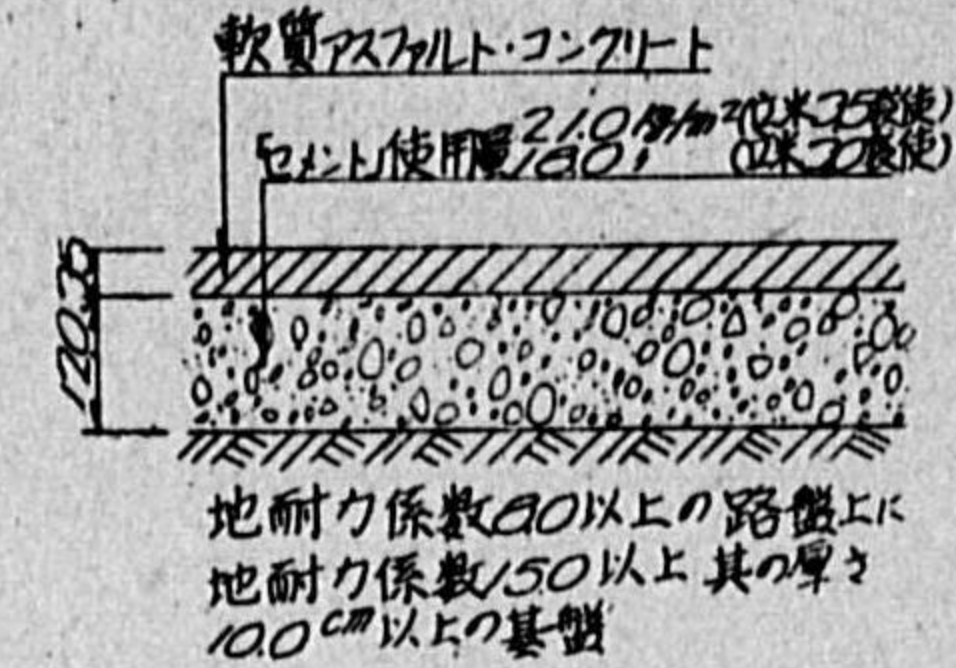 軟質アスファルト・コンクリート
「セメント」使用量 21.0 kg/m² (立米35瓲使)
18.0 〃 (立米30瓲使)
3.5
12.0
地耐力係数8.0以上の路盤上に
地耐力係数15.0以上其の厚さ
10.0cm以上の基盤